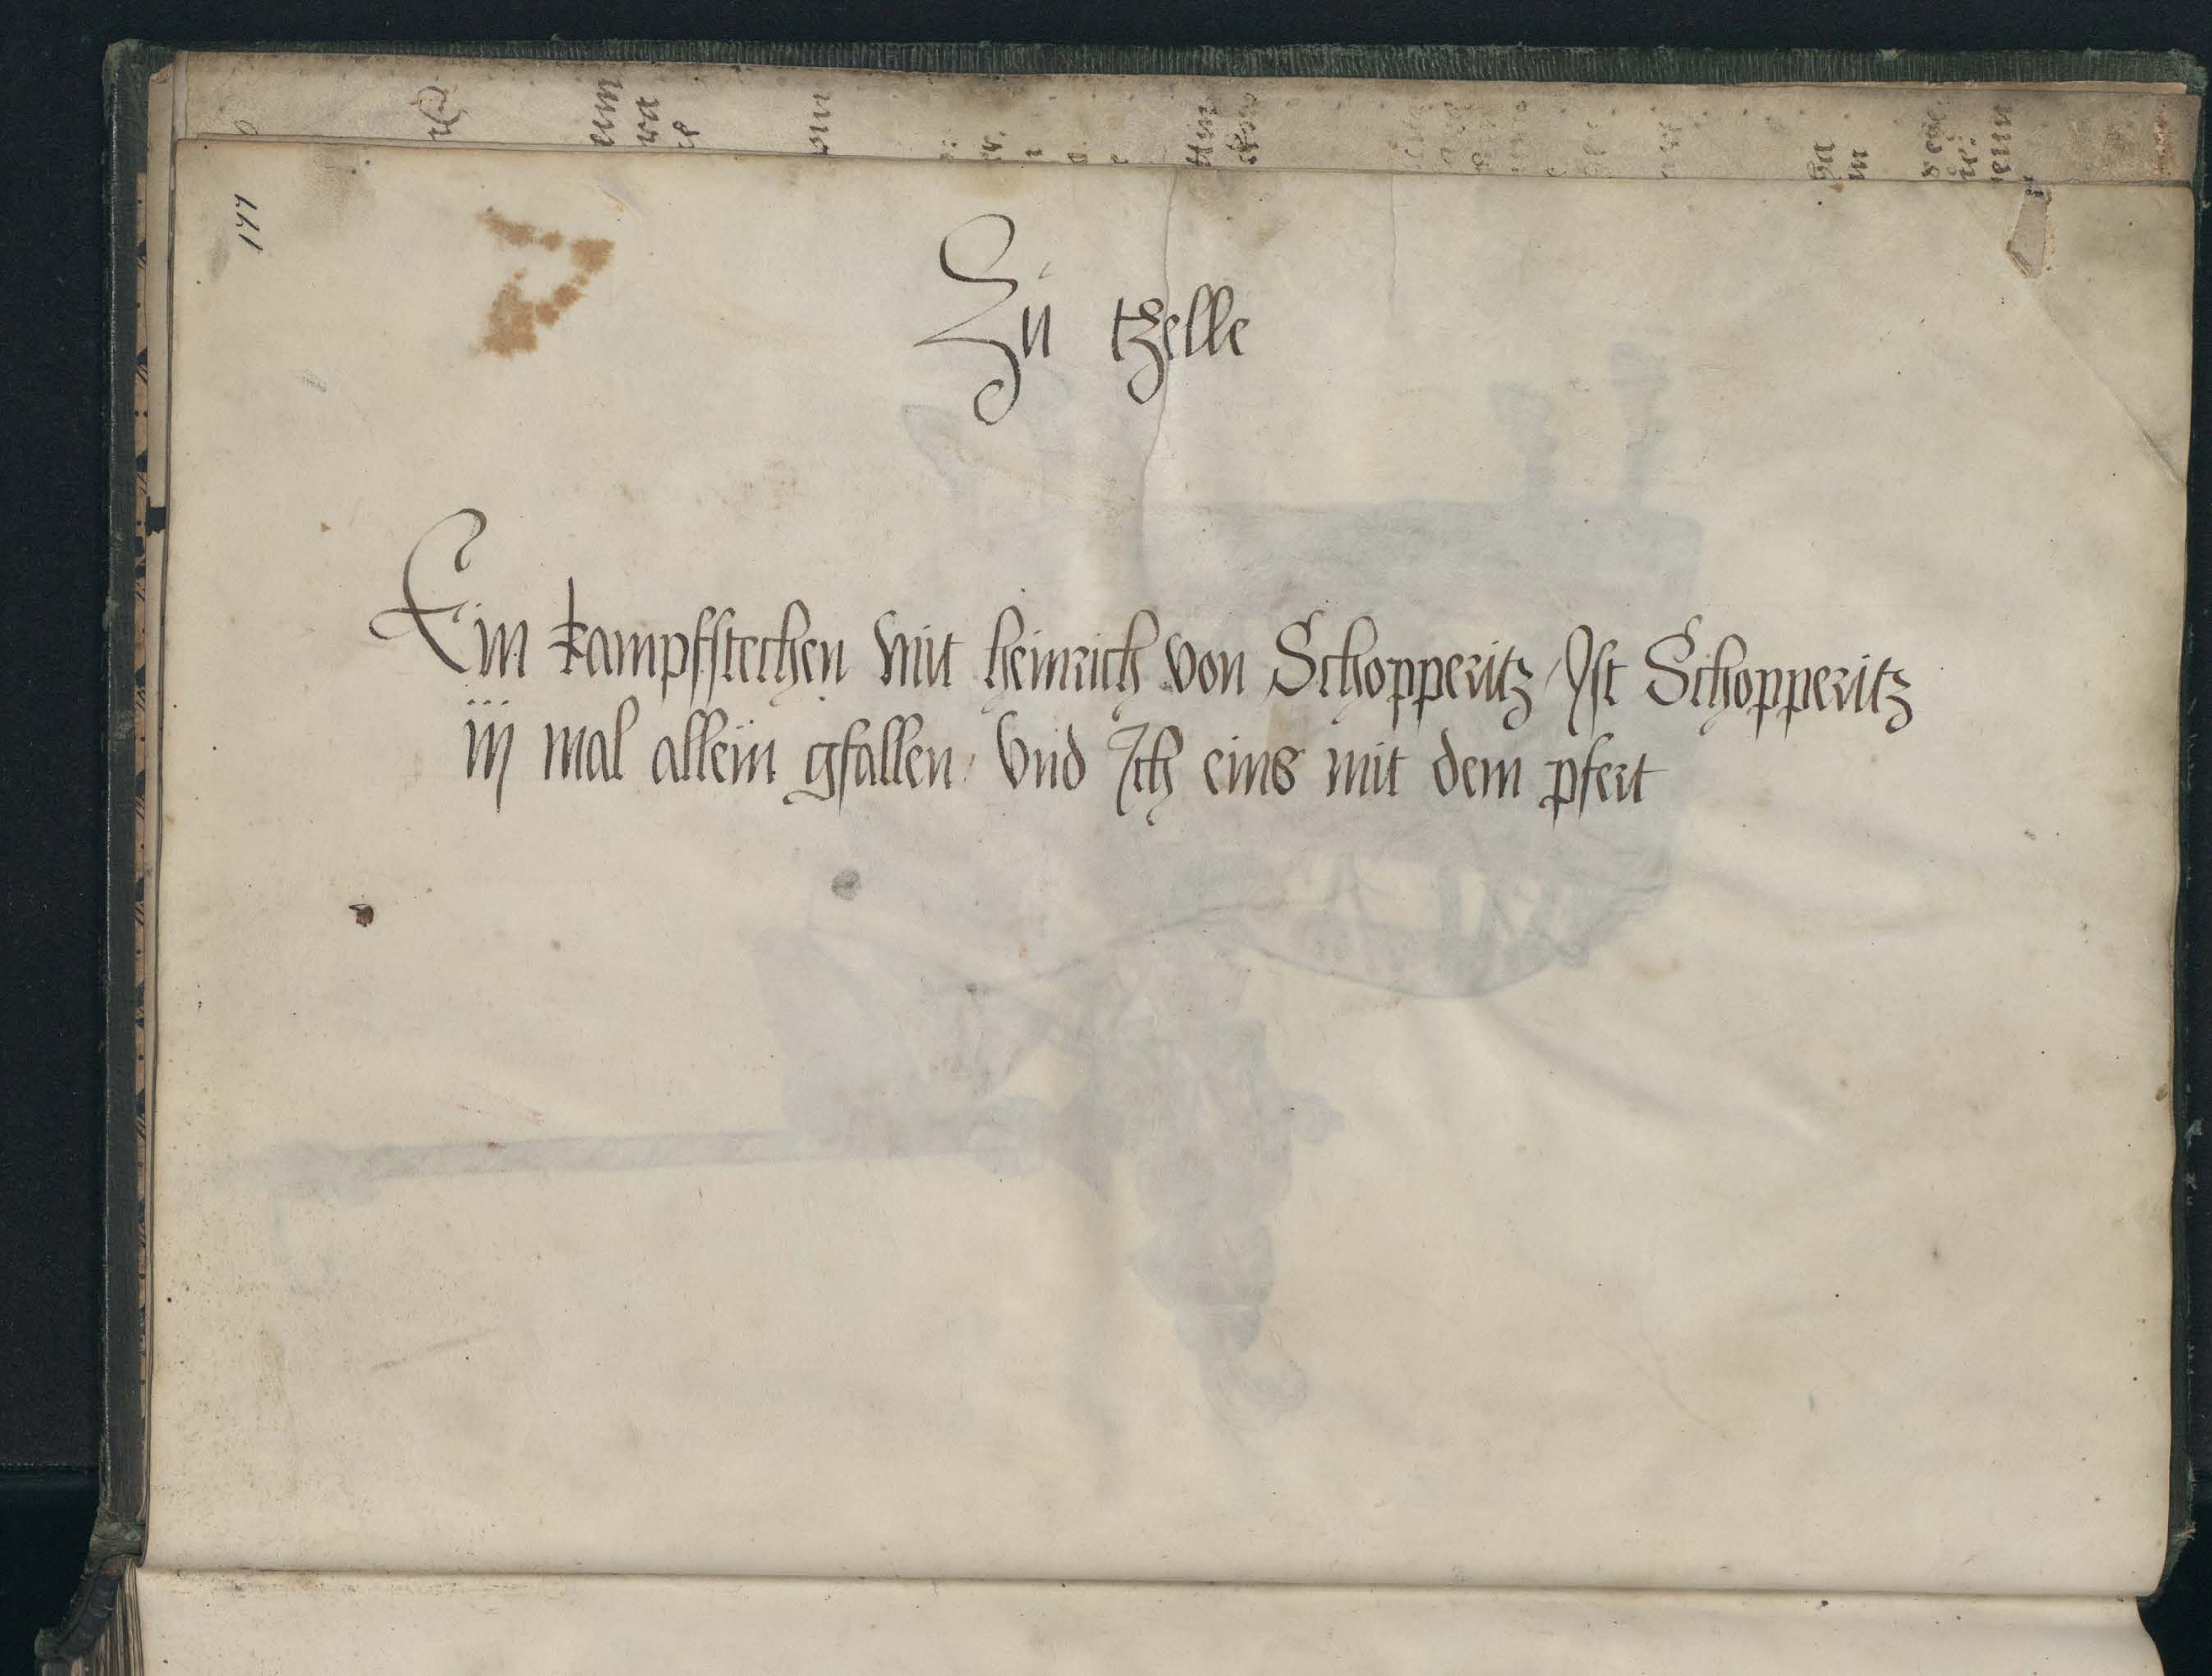 Zu tzelle
Ein kampfstechen mit heinrich von Schopperitz / Ist Schopperitz
iij mal allein gfallen / Vnd Ich eins mit dem pfert